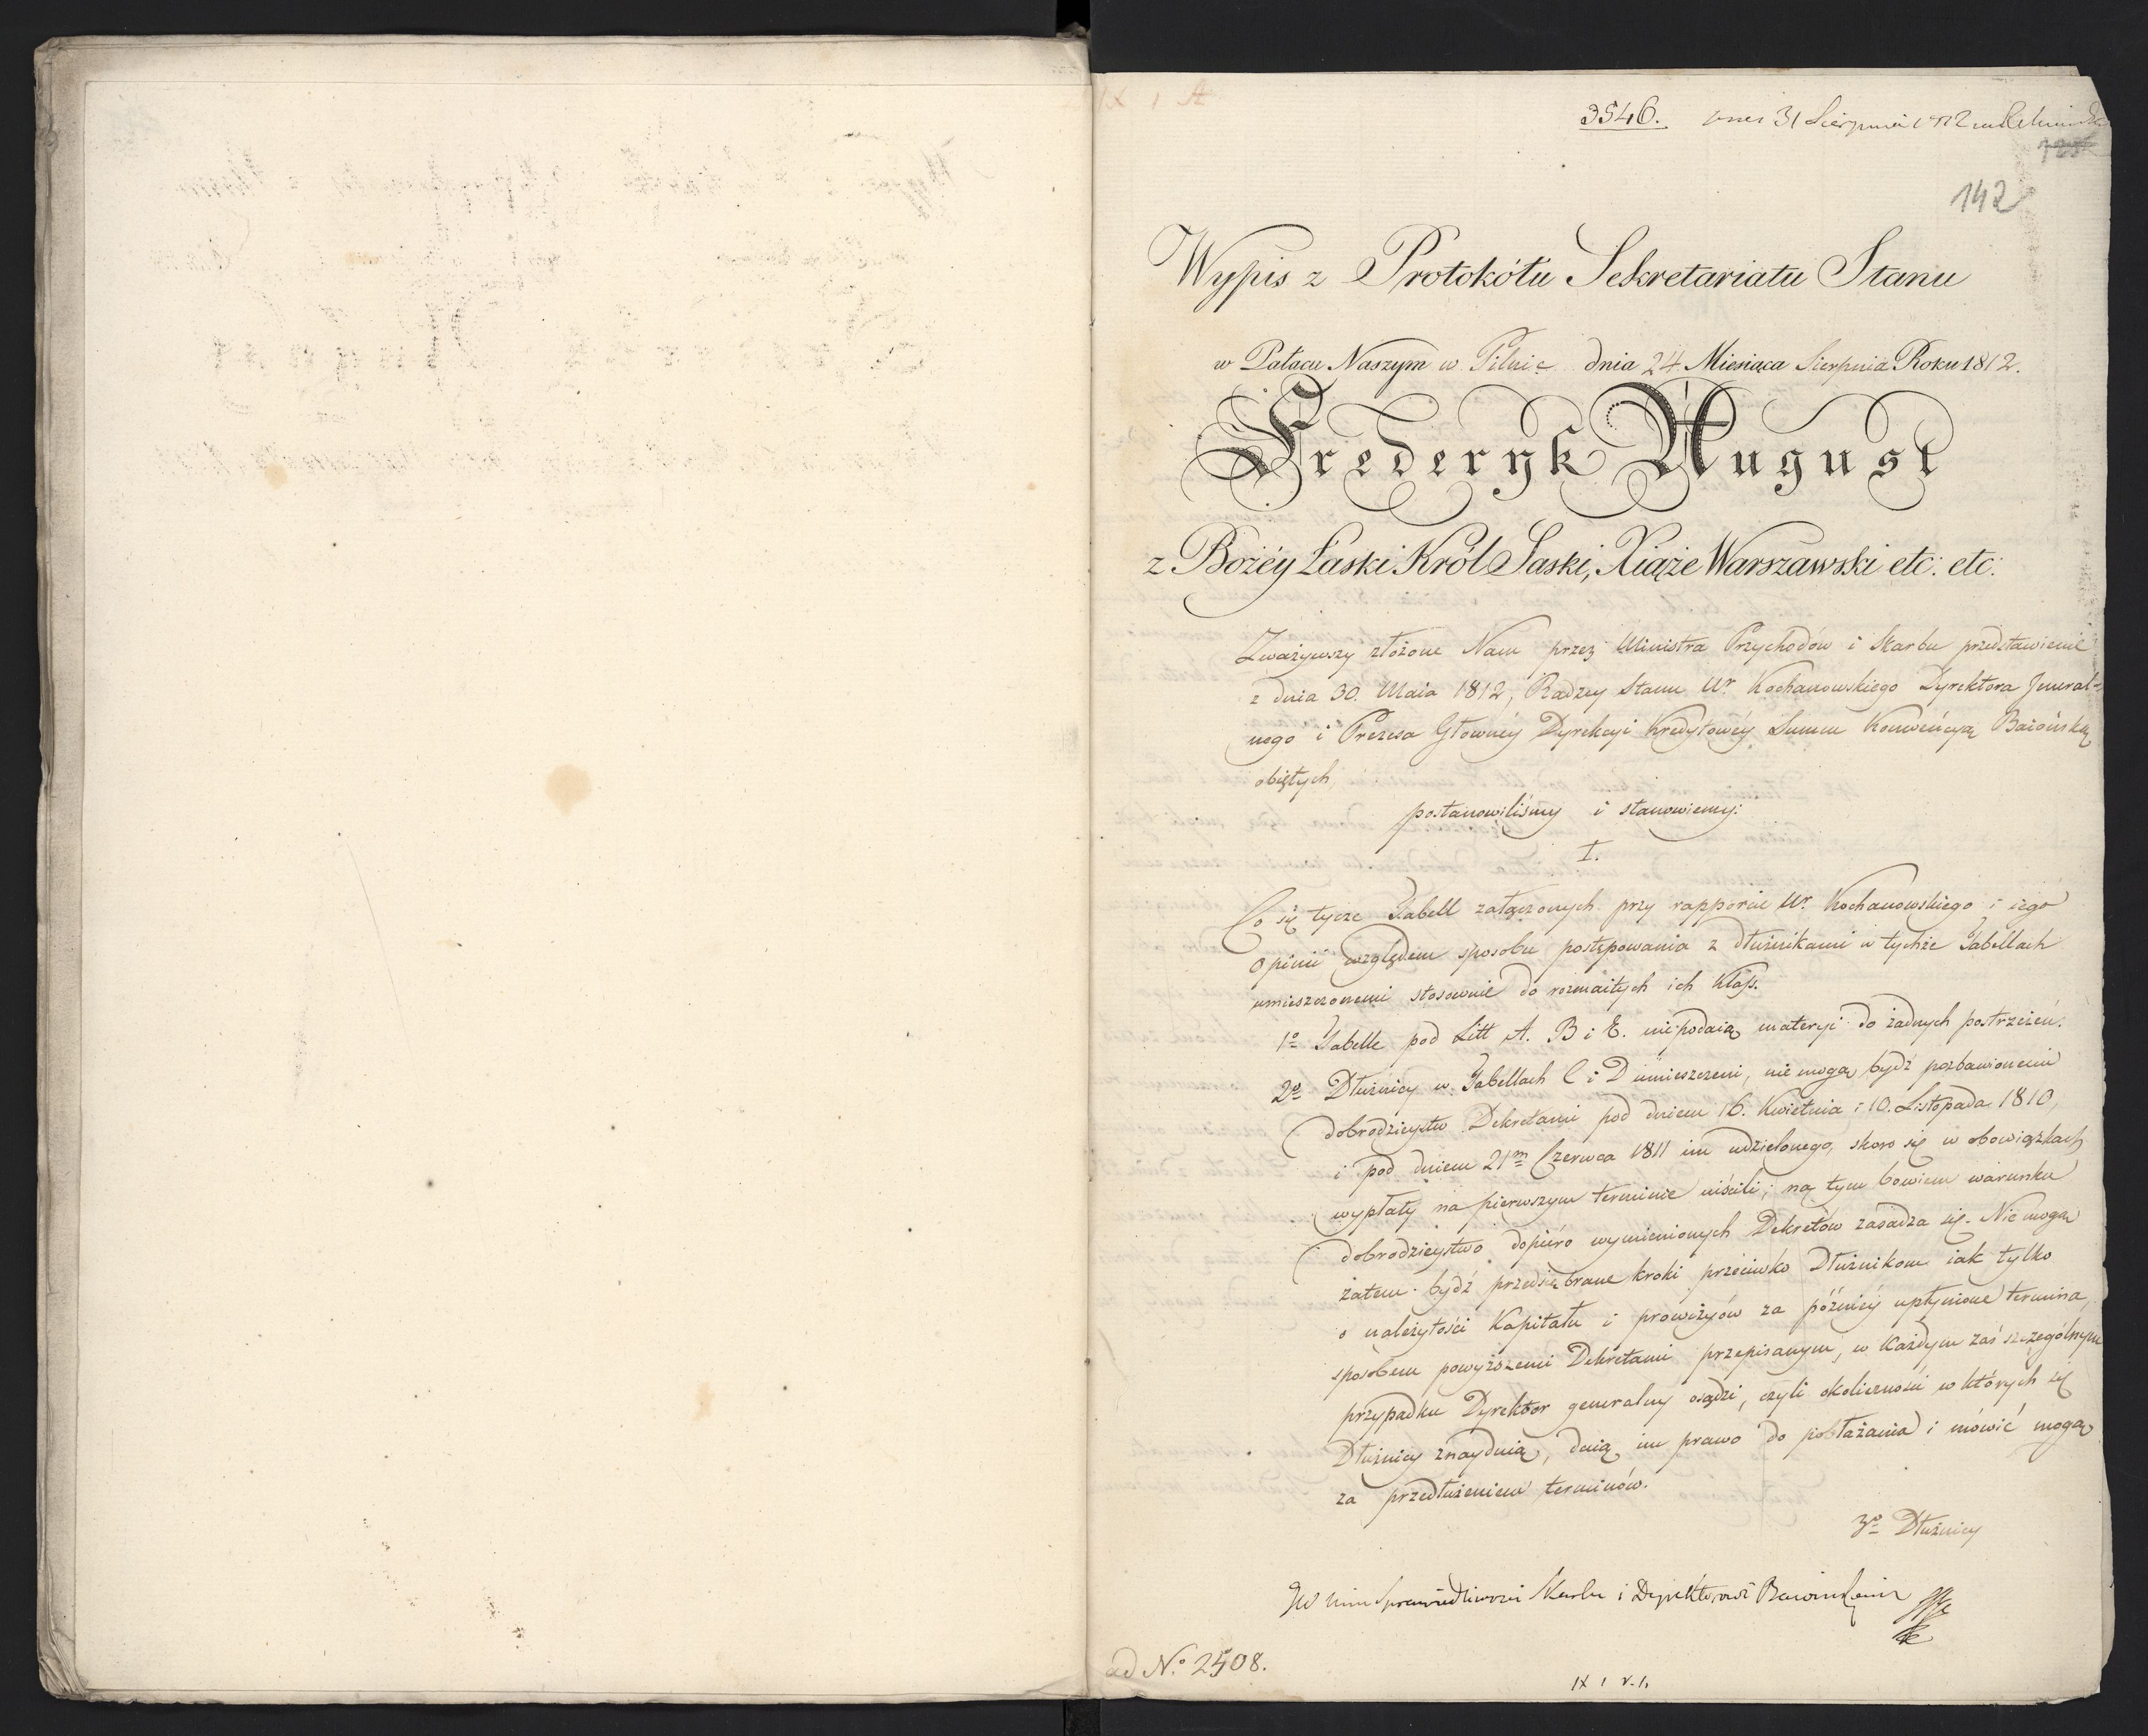 IX 1 A
3546. dnia 31 Sierpnia 1812
142
Wypis z Protokółu Sekretariatu Stanu
w Pałacu Naszym w Pilnic dnia 24 Miesiąca Sierpnia Roku 1812.
Frederyk August
z Bożéy Łaski Król Saski, Xiąże Warszawski etc: etc:
Zważywszy złożone Nam przez Ministra Przychodów i Skarbu przedstawienie
z dnia 30. Maia 1812, Radzcy Stanu Ur Kochanowskiego Dyrektora Jeneral-
nego i Prezesa Głownéy Dyrekcyi Kredytowéy Summ Konwencyą Baiońską
obiętych,
postanowiliśmy i stanowiemy:
I.
Co się tycze Tabell załączonych przy rapporcie Ur. Kochanowskiego i iego
opinii względem sposobu postępowania z dłużnikami w tychże Tabellach
umieszczonemi stosownie do rozmaitych ich Klass.
1o Tabelle pod Litt A. B i E. niepodaią materyi do żadnych postrzeżeń.
2o Dłużnicy w Tabellach C i D umieszczeni, nie mogą bydź pozbawionemi
dobrodzieystw Dekretami pod dniem 16. Kwietnia i 10. Listopada 1810,
i pod dniem 21m Czerwca 1811 im udzielonego, skoro się w obowiązkach
wypłaty na pierwszym terminie uiścili; na tym bowiem warunku
dobrodzieystwo dopiero wymienionych Dekretów zasadza się. Nie mogą
zatem bydź przedsiębrane kroki przeciwko Dłużnikom iak tylko
o należytości Kapitału i prowizyów za późniéy upłynione termina,
sposobem powyższemi Dekretami przepisanym, w każdym zaś szczególnym
przypadku Dyrektor generalny osądzi, czyli okoliczności w których się
Dłużnicy znayduią, daią im prawo do pobłażania i mówić mogą
za przedłużeniem terminów.
3o Dłużnicy
JW Min Sprawiedliwości Skarbu i Dyrektorowi
ad No. 2508.
IX 1 v. 1.